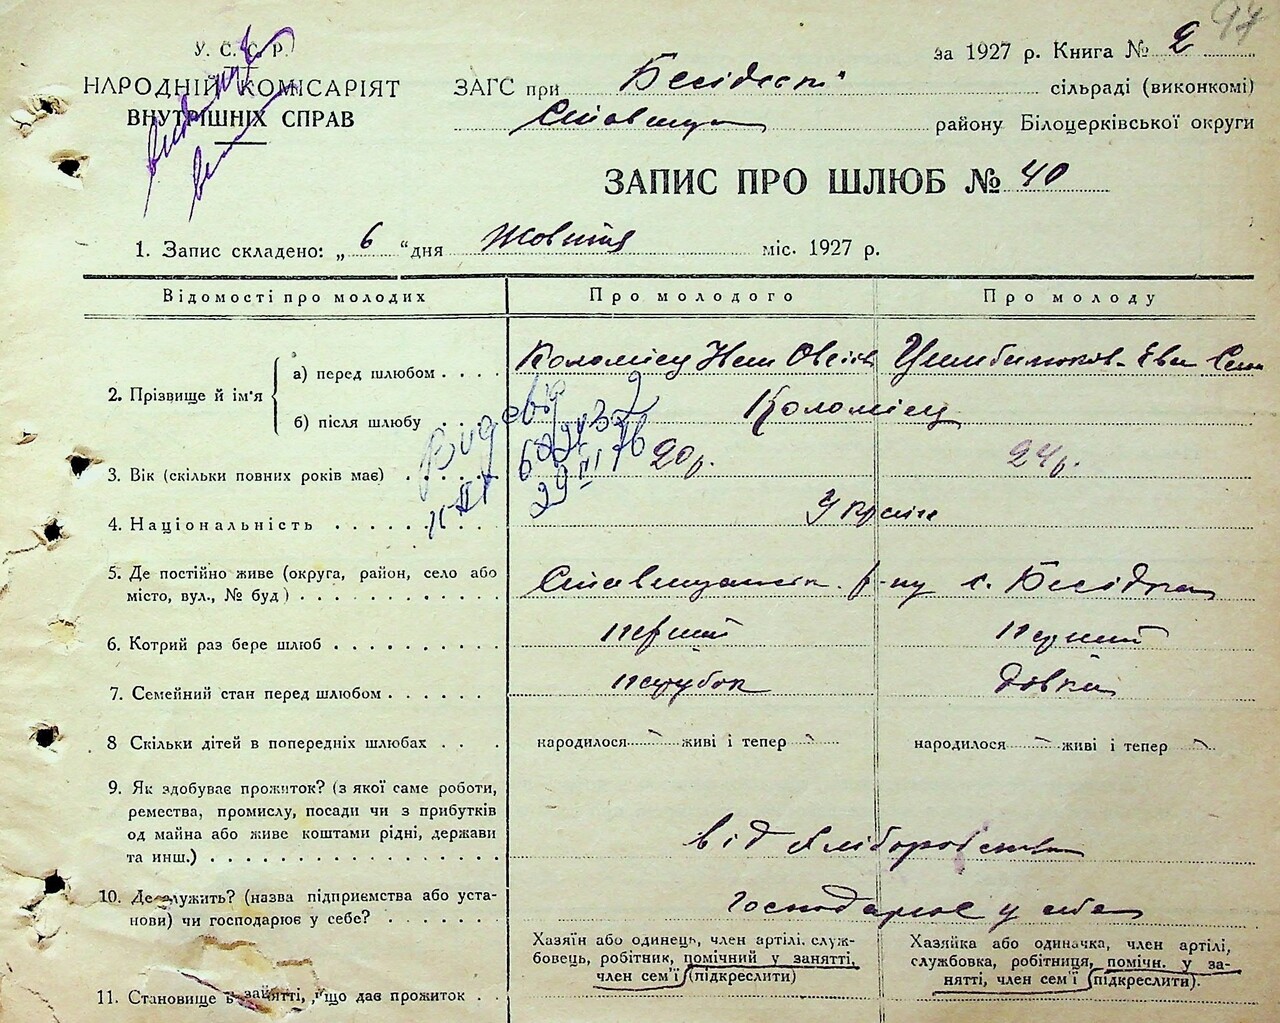 97
У. С. С. Р.
НАРОДНІЙ КОМІСАРІЯТ
ВНУТРІШНІХ СПРАВ
за 1927 р. Книга № 2
ЗАГС при Бесідські сільраді (виконкомі)
Ставища району Білоцерківської округи
ЗАПИС ПРО ШЛЮБ № 40
1. Запис складено: „ 6 “ дня Жовтня міс. 1927 р.
Відомості про молодих Про молодого Про молоду
2. Прізвище й ім'я
а) перед шлюбом . . . . Коломієц Овсіїв Єва
б) після шлюбу . . Коломієц
3. Вік (скільки повних років має) . . . . . 20 р. 24 р.
4. Національність . . . . . . Україн
29 III 76
5. Де постійно живе (округа, район, село або
місто, вул., № буд) . . . . . . . . . . Ставищанськ. р-ну с. Бесідка
6. Котрий раз бере шлюб . . . . . . . . . перший перший
7. Семейний стан перед шлюбом . . . . . . парубок дівка
8 Скільки дітей в попередніх шлюбах . . . народилося — живі і тепер — народилося — живі і тепер —
9. Як здобуває прожиток? (з якої саме роботи,
ремества, промислу, посади чи з прибутків
од майна або живе коштами рідні, держави
та инш.) . . . . . . . . . . . . . . від хліборобства
10. Де служить? (назва підприємства або уста-
нови) чи господарює у себе? . . . . . . . господарює у себе
Хазяїн або одинець, член артілі. служ-
бовець, робітник, помічний у занятті,
член сем'ї (підкреслити)
Хазяйка або одиначка, член артілі,
службовка, робітниця, помічн. у за-
нятті, член сем'ї (підкреслити).
11. Становище в занятті, що дає прожиток . .